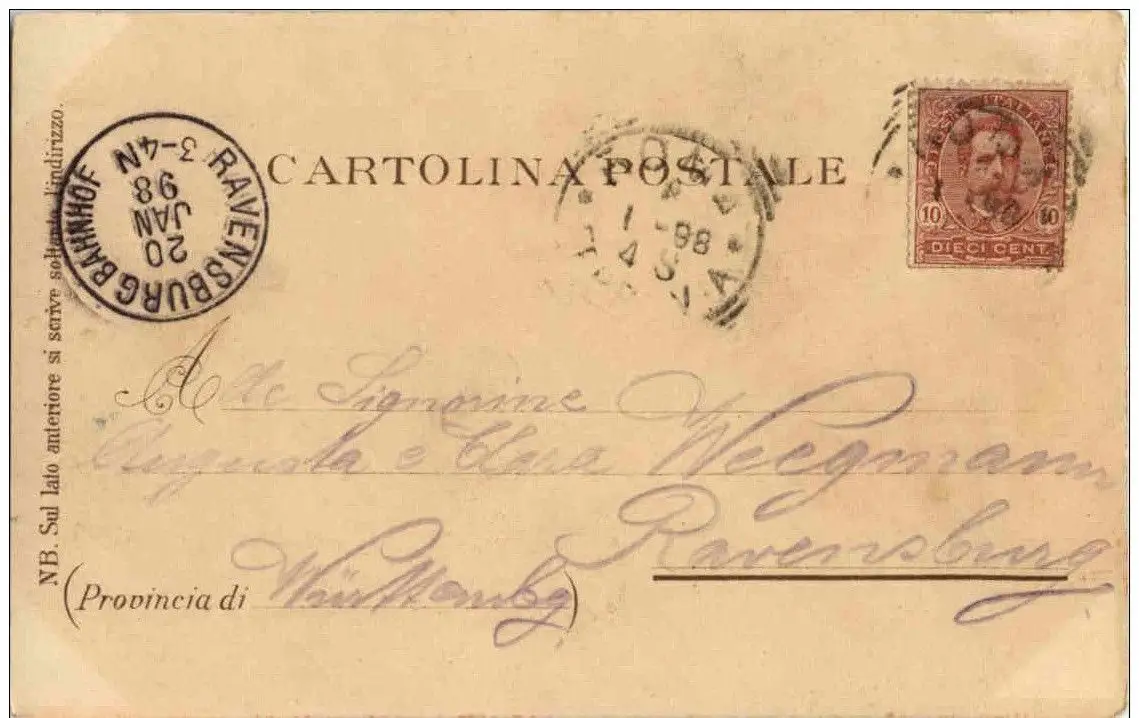 CARTOLINA POSTALE
RAVENSBURG BAHNHOF
20
JAN
98
3-4N
1 - 98
4 S
10 10
DIECI CENT.
NB. Sul lato anteriore si scrive soltanto l'indirizzo.
Alle Signorine
Augusta e Clara Weegmann
Ravensburg
(Provincia di Württembg)